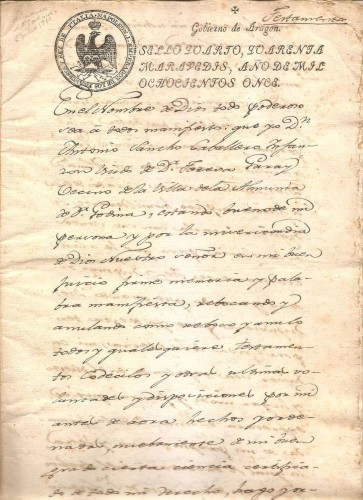 Testamento
Gobierno de Aragon.
SELLO QUARTO, QUARENTA
MARAVEDIS, AÑO DE MIL
OCHOCIENTOS ONCE.
En el Nombre de Dios todo poderoso
sea a todos manifiesto, que yo Dn
Antonio Sancho Caballero Infan
zon Viudo de Da Teresa Garay
Vecino de la Villa de la Almunia
de Da Godina, estando bueno de mi
persona y por la misericordia
de Dios Nuestro señor en mi buen
juicio firme memoria y pala
bra manifiesta, rebocando y
anulando como reboco y anulo
todos y qualesquiere testamen
tos Codicilos y otras ultimas vo
luntades y disposiciones por mi
antes de aora hechos y orde
nada, nuebamente de mi buen
grado cierta ciencia certifica
do de todo mi derecho, hago y or